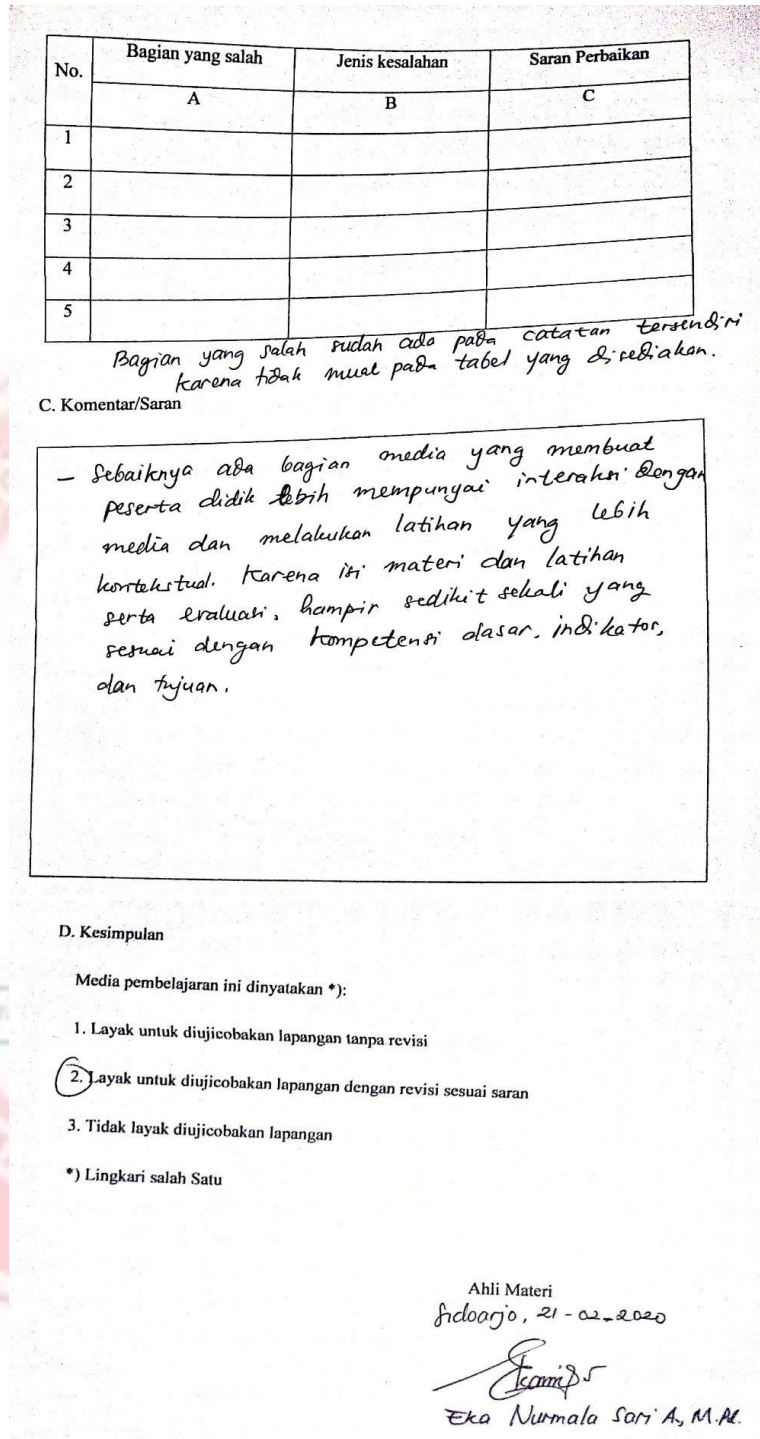 No. Bagian yang salah Jenis kesalahan Saran Perbaikan
A B C
1
2
3
4
5
Bagian yang salah sudah ada pada catatan tersendiri
karena tidak muat pada tabel yang disediakan.
C. Komentar/Saran
- Sebaiknya ada bagian media yang membuat
peserta didik lebih mempunyai interaksi dengan
media dan melakukan latihan yang lebih
kontekstual. Karena isi materi dan latihan
serta evaluasi, hampir sedikit sekali yang
sesuai dengan kompetensi dasar, indikator,
dan tujuan.
D. Kesimpulan
Media pembelajaran ini dinyatakan *):
1. Layak untuk diujicobakan lapangan tanpa revisi
2. Layak untuk diujicobakan lapangan dengan revisi sesuai saran
3. Tidak layak diujicobakan lapangan
*) Lingkari salah Satu
Ahli Materi
Sidoarjo, 21-02-2020
Eka Nurmala Sari A., M.Pd.